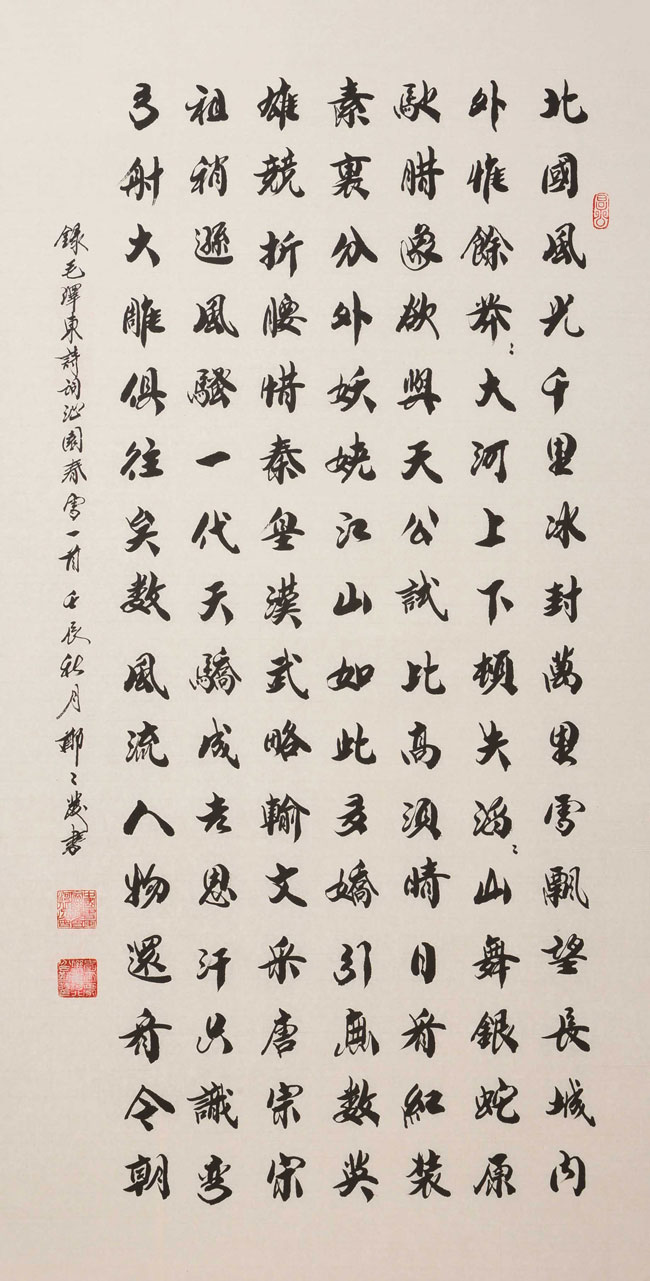 北國風光千里冰封萬里雪飄望長城内
外惟餘莽〻大河上下頓失滔〻山舞銀蛇原
馳腊象欲與天公試比高須晴日看紅裝
素裹分外妖嬈江山如此多嬌引無数英
雄競折腰惜秦皇漢武略輸文采唐宗宋
祖稍遜風騷一代天驕成吉思汗只識彎
弓射大雕俱往矣数風流人物還看今朝
錄毛澤東詩詞沁園春雪一首壬辰秋月書